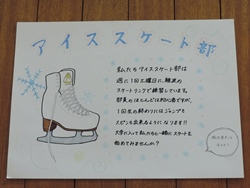 アイススケート部
私たちアイススケート部は
週に1回土曜日に、難波の
スケートリンクで練習しています。
部員のほとんどは初心者ですが、
1回生の終わりにはジャンプも
スピンも出来るようになります!!
大学に入って私たちと一緒にスケートを
始めてみませんか?